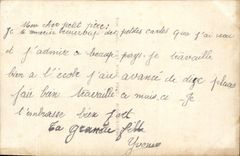 Mon cher petit père;
Je te remercie beaucoup des petites cartes que j'ai reçu
et j'admire ce beau pays. je travaille
bien a l'école j'ai avancé de dix places
j'ai bien travaillé ce mois ce. Je
t'embrasse bien fort
ta grande fille
Yvonne